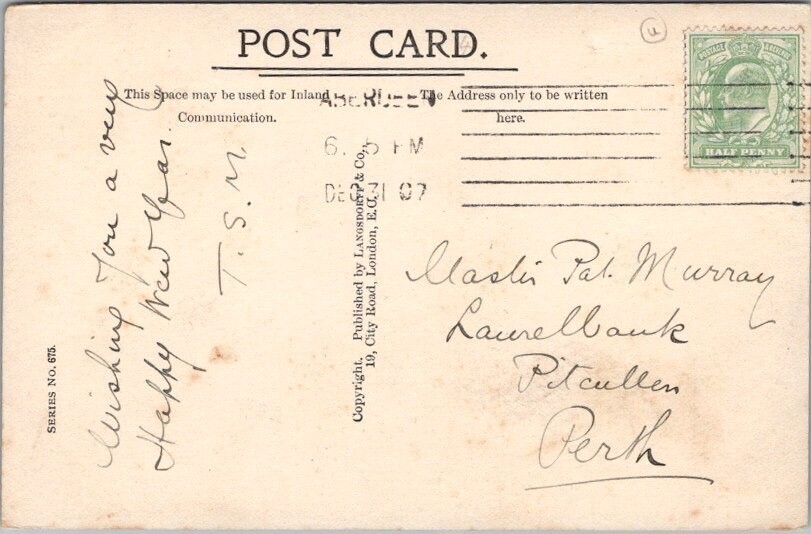 POST CARD.
This Space may be used for Inland
Communication.
The Address only to be written
here.
ABERDEEN
6. 5 PM
DEC 31 07
POSTAGE
HALF PENNY
Wishing You a very
Happy New Year.
T. S. M.
SERIES NO. 675.
Copyright. Published by LANGSDORFF & Co.,
19, City Road, London, E.C.
Master Pat. Murray
Laurelbank
Pitcullen
Perth